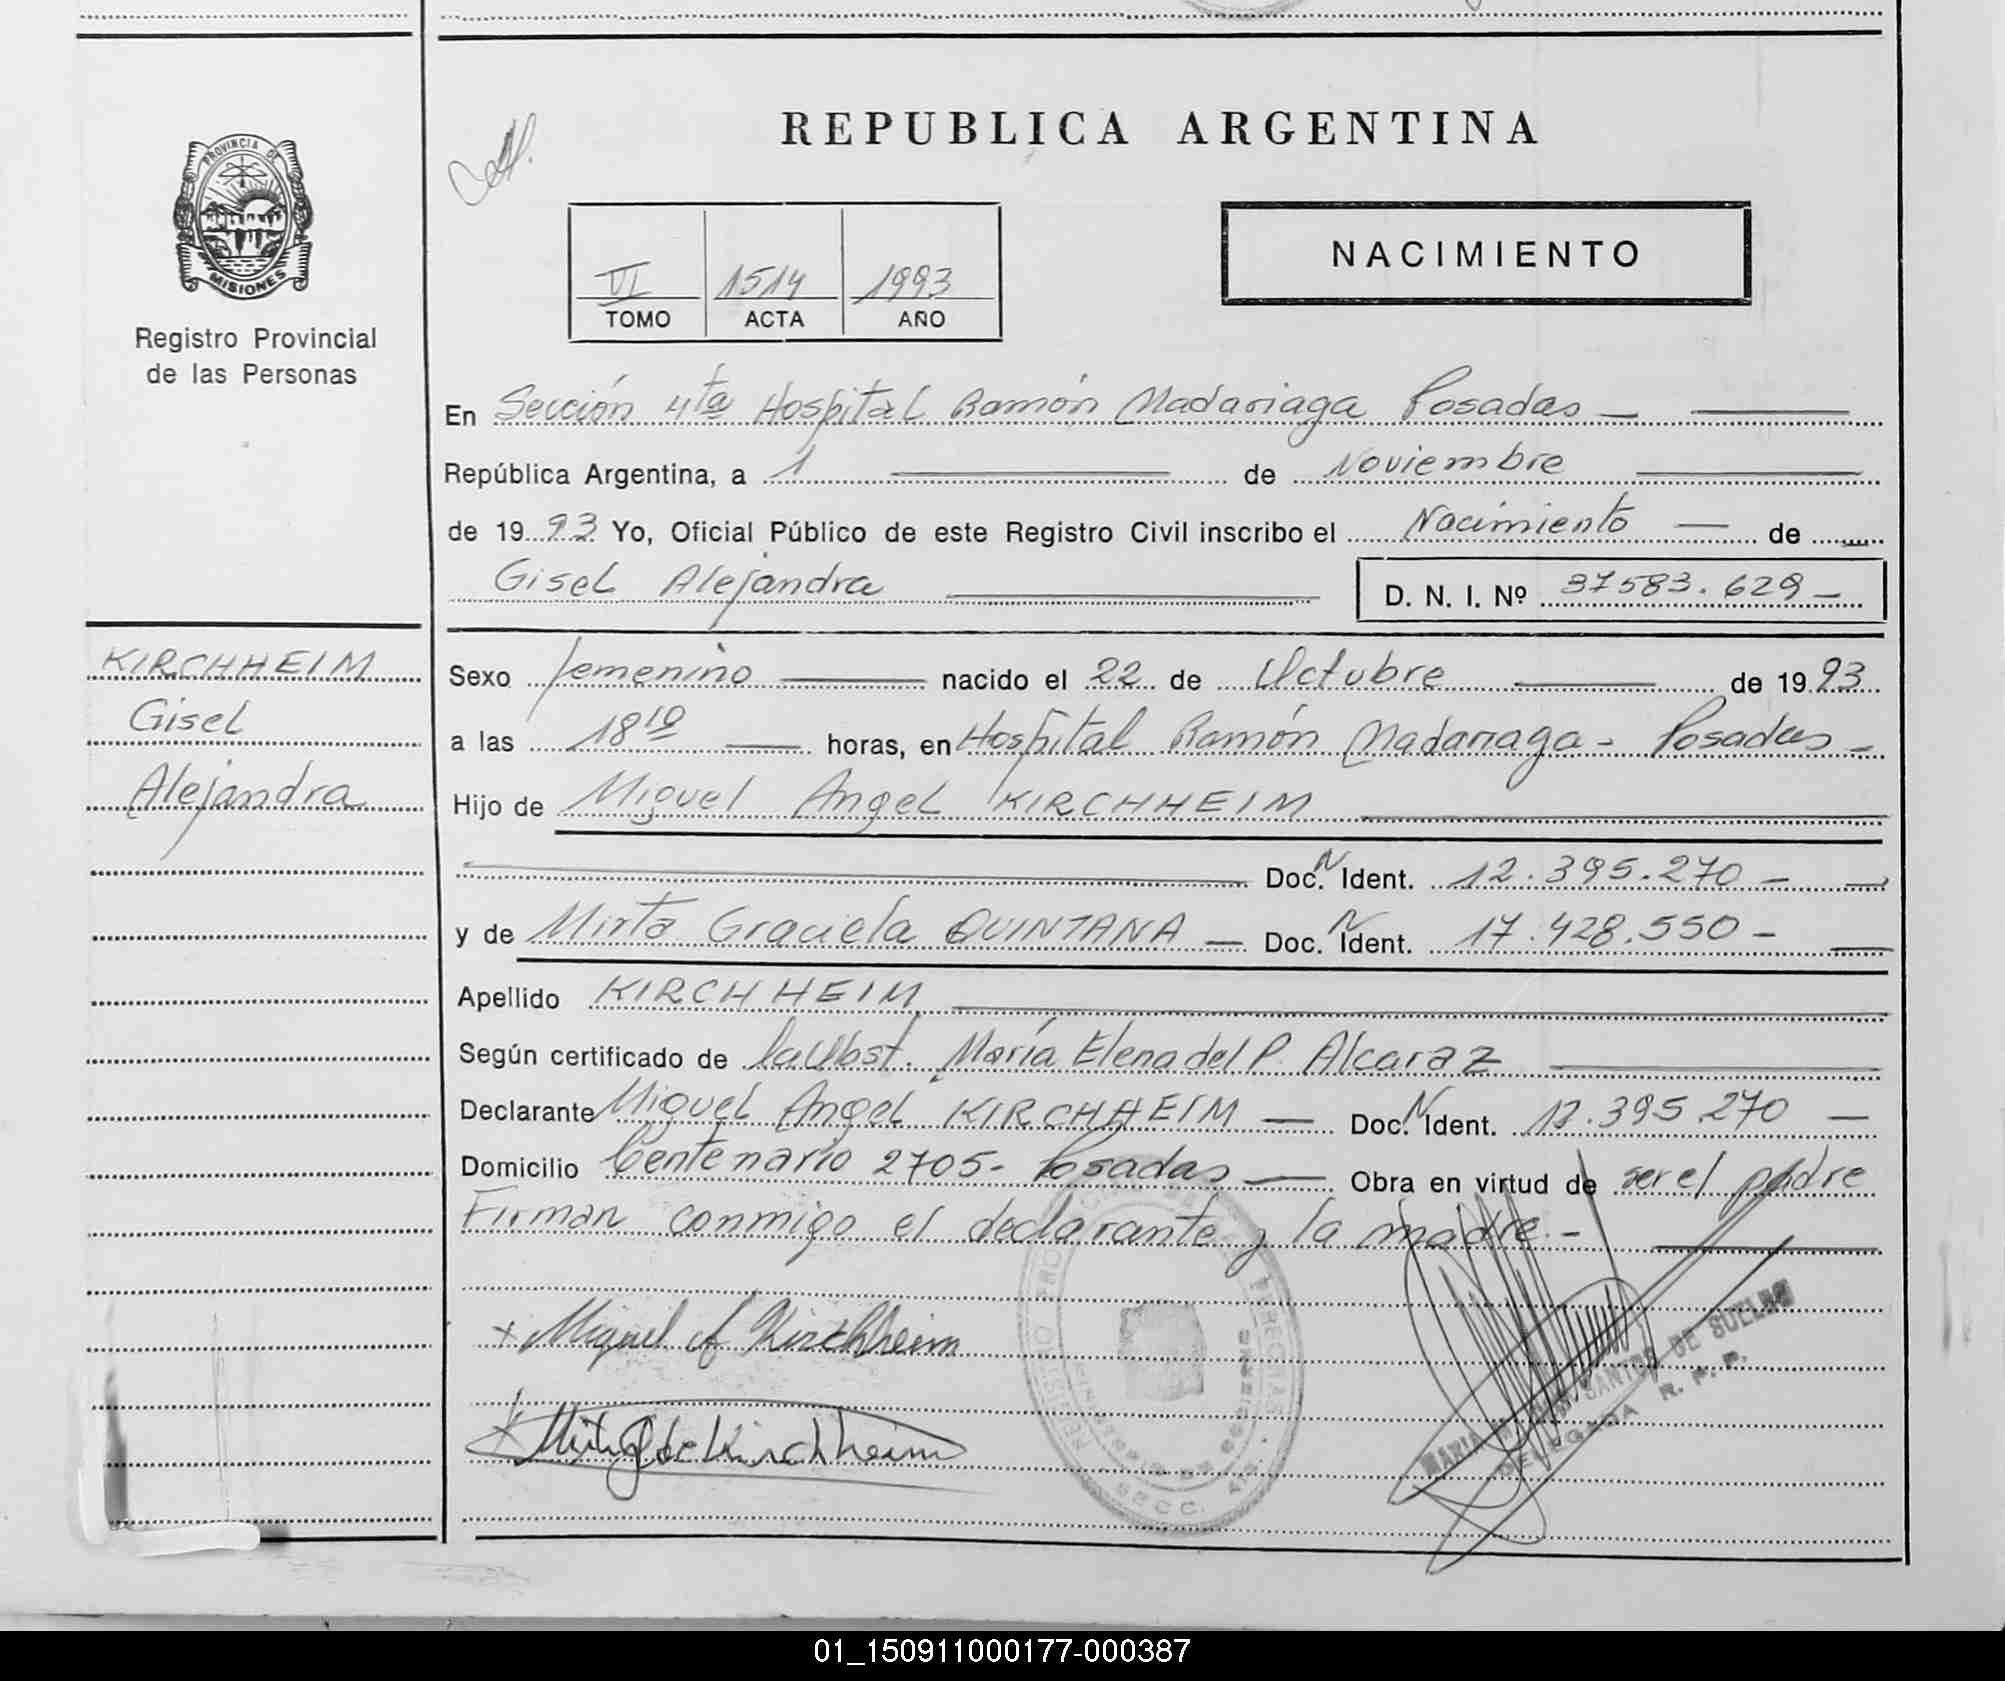 PROVINCIA DE
MISIONES
Registro Provincial
de las Personas
KIRCHHEIM
Gisel
Alejandra
REPUBLICA ARGENTINA
VI 1514 1993
TOMO ACTA AÑO
NACIMIENTO
En Sección 4ta Hospital Ramón Madariaga Posadas —
República Argentina, a 1 de Noviembre
de 1993 Yo, Oficial Público de este Registro Civil inscribo el Nacimiento — de
Gisel Alejandra D. N. I. Nº 37583.629 -
Sexo femenino nacido el 22 de Octubre de 1993
a las 18 10 horas, en Hospital Ramón Madariaga - Posadas -
Hijo de Miguel Angel KIRCHHEIM
Doc. N Ident. 12.395.270 -
y de Mirta Graciela QUINTANA — Doc. N Ident. 17.428.550 -
Apellido KIRCHHEIM
Según certificado de la Obst. María Elena del P. Alcaraz
Declarante Miguel Angel KIRCHHEIM — Doc. N Ident. 12.395.270 —
Domicilio Centenario 2705- Posadas — Obra en virtud de ser el padre
Firman conmigo el declarante y la madre.-
x Miguel A Kirchheim
x Mirta Q de Kirchheim
REGISTRO PERSONAS
MINISTERIO DE GOBIERNO
SECC.
MARIA SANTOS DE
DELEGADA R. P. P.
01_150911000177-000387